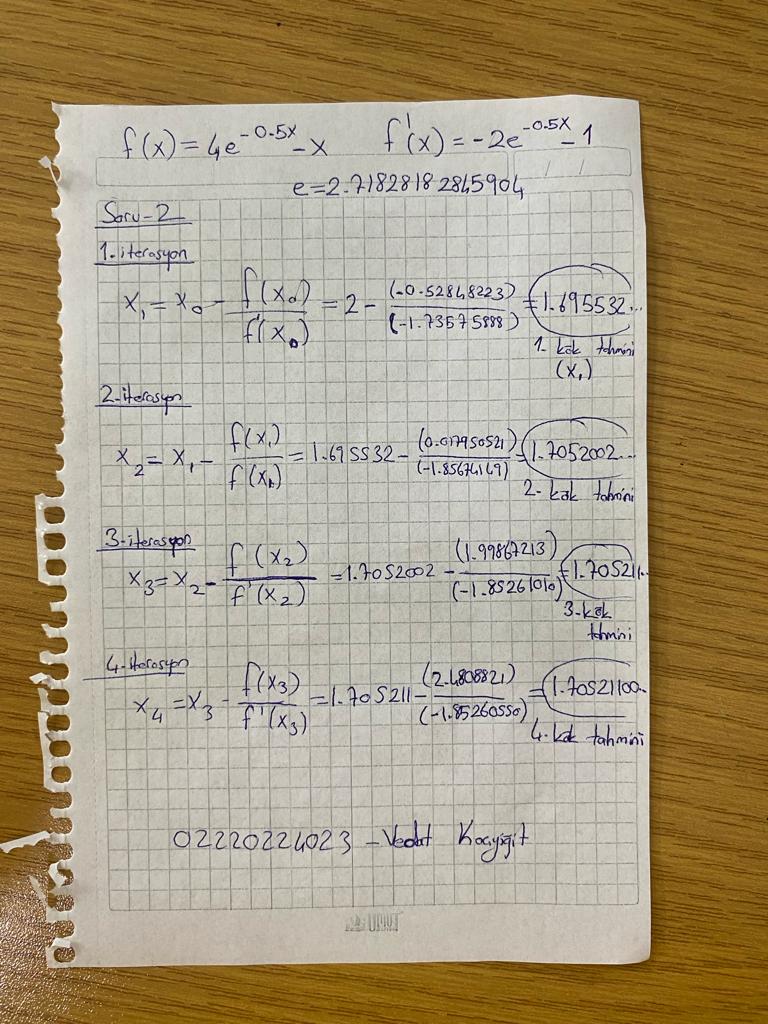 f(x) = 4e^-0.5x - x   f'(x) = -2e^-0.5x - 1
e = 2.71828182845904
Soru-2
1.iterasyon
x₁ = x₀ - f(x₀) / f'(x₀) = 2 - (-0.52848223) / (-1.73575888) = 1.695532...
1. kök tahmini
(x₁)
2-iterasyon
x₂ = x₁ - f(x₁) / f'(x₁) = 1.695532 - (0.017950521) / (-1.85674149) = 1.7052002...
2- kök tahmini
3-iterasyon
x₃ = x₂ - f(x₂) / f'(x₂) = 1.7052002 - (1.99867213) / (-1.85261010) = 1.705211...
3-kök
tahmini
4-iterasyon
x₄ = x₃ - f(x₃) / f'(x₃) = 1.705211 - (2.4808821) / (-1.85260550) = 1.70521100...
4. kök tahmini
02220224023 - Vedat Koçyiğit
UMUT